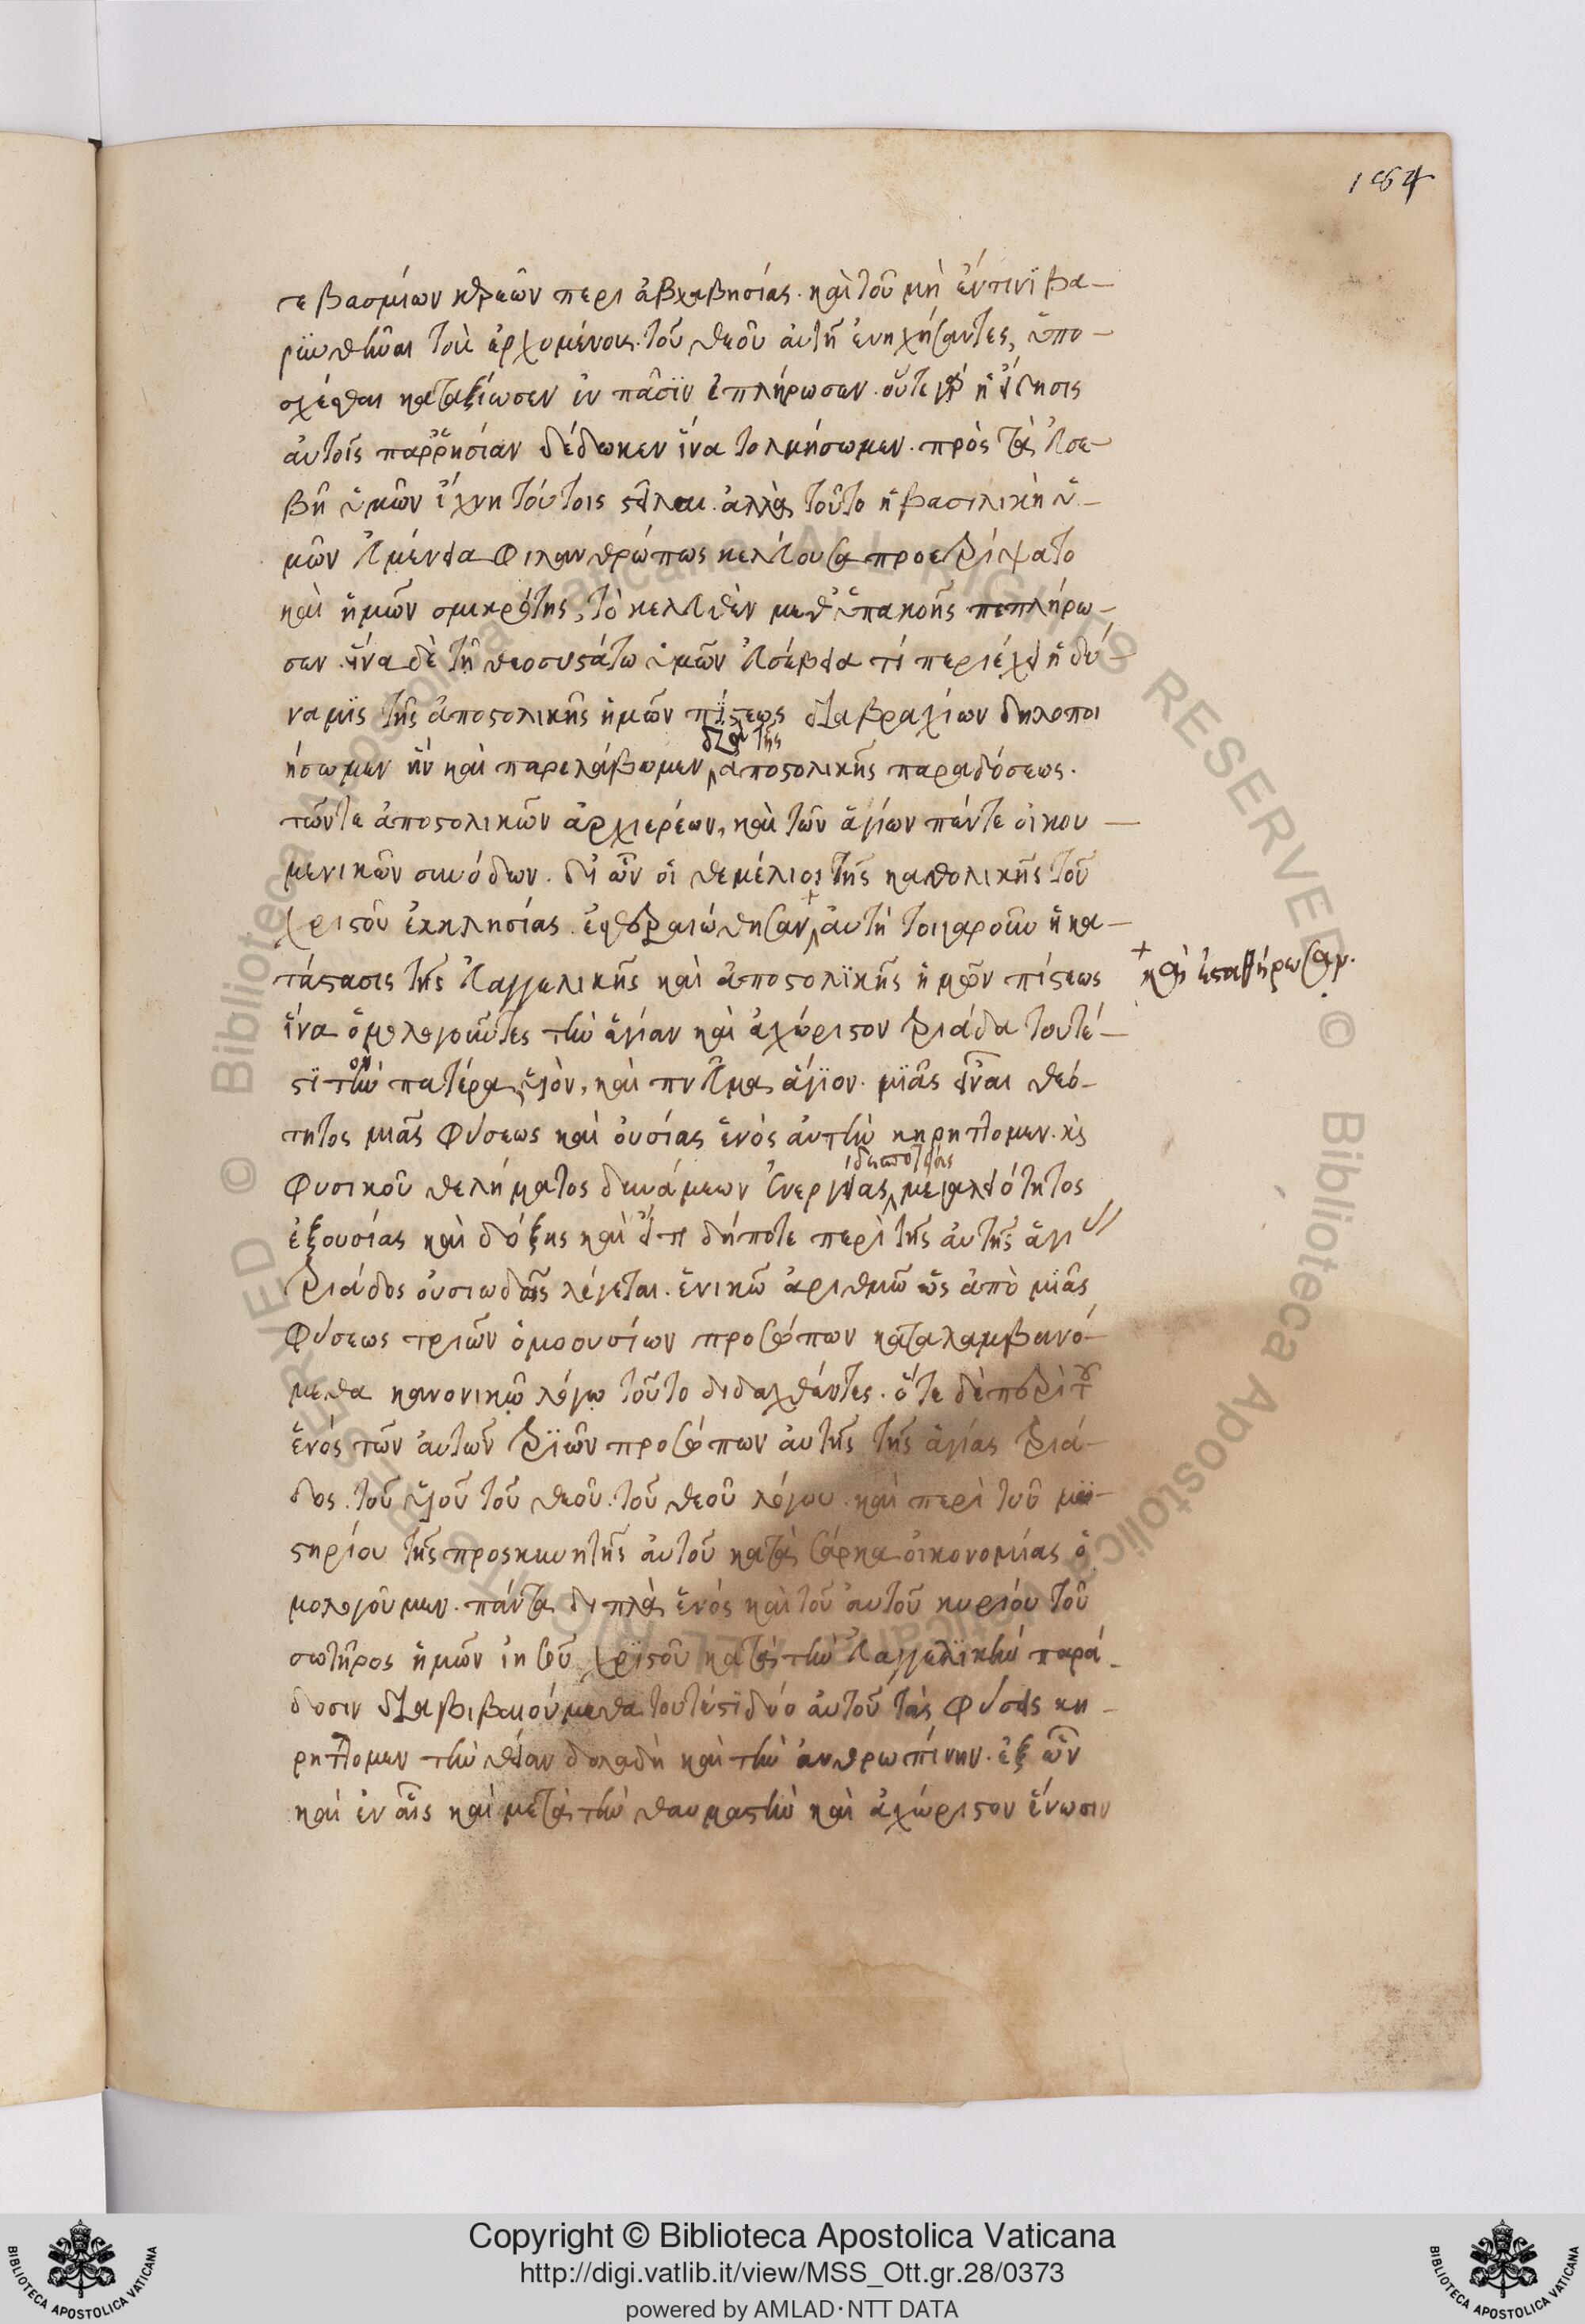 184
τε βασμίων κεραιῶν περι ἀβλαβησίας. καὶ τοῦ μὴ ἔν τινϊ βα-
ρυνθῆναι τοὺς ἐρχομένους. τοῦ θεοῦ αὐτῆ ἐνηχήσαντες, ὑπο-
σχέσθαι κατηξίωσεν ἐν πᾶσϊν ἐπλήρωσαν. οὔτε γὰρ ἡ εἴδησις
αὐτοῖς παῤῥησίαν δέδωκεν ἵνα τολμήσωμεν. πρὸς τὰ εὐσε-
βῆ ὑμῶν ἴχνη τούτοις στεῖλαι. ἀλλὰ τοῦτο ἡ βασιλικὴ ὑ-
μῶν εὐμένεια φιλανθρώπως κελεύουσα προετρέψατο
καὶ ἡμῶν σμικρότης, τὸ κελευθὲν μεθ' ὑπακοῆς πεπλήρω-
σαν. ἵνα δὲ τῆ θεοσυστάτω ὑμῶν εὐσέβεια τί περιέχει ἡ δύ-
ναμϊς τῆς ἀποστολικῆς ἡμῶν πίστεως διαβραχίων δηλοποι
ήσωμεν ἣν καὶ παρελάβωμεν διὰ τῆς ἀποστολικῆς παραδόσεως.
τῶντε ἀποστολικῶν ἀρχιερέων, καὶ τῶν ἁγίων πέντε οἰκου-
μενικῶν συνόδων. δι ὧν οἱ θεμέλιοι τῆς καθολικῆς τοῦ
χριστοῦ ἐκκλησίας. ἐφεδραιώθησαν + αὐτὴ τοιγαροῦν ἡ κα-
+ καὶ ἐστατήρωσαν.
τάστασις τῆς εὐαγγελικῆς καὶ ἀποστολϊκῆς ἡμῶν πίστεως
ἵνα ὁμολογοῦντες τὴν ἁγίαν καὶ ἀχώριστον τριάδα τουτέ-
στϊ τὸν πατέρα, υἱὸν, καὶ πνεῦμα ἅγϊον. μϊᾶς εἶναι θεό-
τητος μιᾶς φύσεως καὶ οὐσίας ἑνὸς αὐτὴν κηρήττομεν. καὶ
φυσικοῦ θελήματος δυνάμεων ἐνεργείας, μεγαλειότητος
ἐξουσίας καὶ δόξης καὶ εἴτι δήποτε περὶ τῆς αὐτῆς ἁγι
τριάδος οὐσιωδῶς λέγεται. ἑνικῶ ἀριθμῶ ὡς ἀπὸ μϊᾶς
φύσεως τριῶν ὁμοουσίων προσώπων καταλαμβανό-
μεθα κανονικῷ λόγω τοῦτο διδαχθέντες. ὅτε δὲ περὶ τοῦ
ἑνός τῶν αὐτῶν τρϊῶν προσώπων αὐτῆς τῆς ἁγίας τριά-
δος. τοῦ υἱοῦ τοῦ θεοῦ. τοῦ θεοῦ λόγου. καὶ περὶ τοῦ μυ-
στηρίου τῆς προσκυνητῆς αὐτοῦ κατὰ σάρκα οἰκονομίας ὁ
μολογοῦμεν. πάντα διπλὰ ἑνός καὶ τοῦ αὐτοῦ κυριόυ τοῦ
σωτῆρος ἡμῶν ἰησοῦ χρϊστοῦ κατὰ τὴν εὐαγγελϊκὴν παρά-
δοσιν διαβιβαιούμεθα τουτέστϊ δύο αὐτοῦ τὰς φύσεις κη-
ρήττομεν τὴν θείαν δηλαδὴ καὶ τὴν ἀνθρωπίνην. ἐξ ὧν
καὶ ἐν αἷς καὶ μετὰ τὴν θαυμαστὴν καὶ ἀχώριστον ἕνωσιν
Copyright © Biblioteca Apostolica Vaticana
http://digi.vatlib.it/view/MSS_Ott.gr.28/0373
powered by AMLAD·NTT DATA